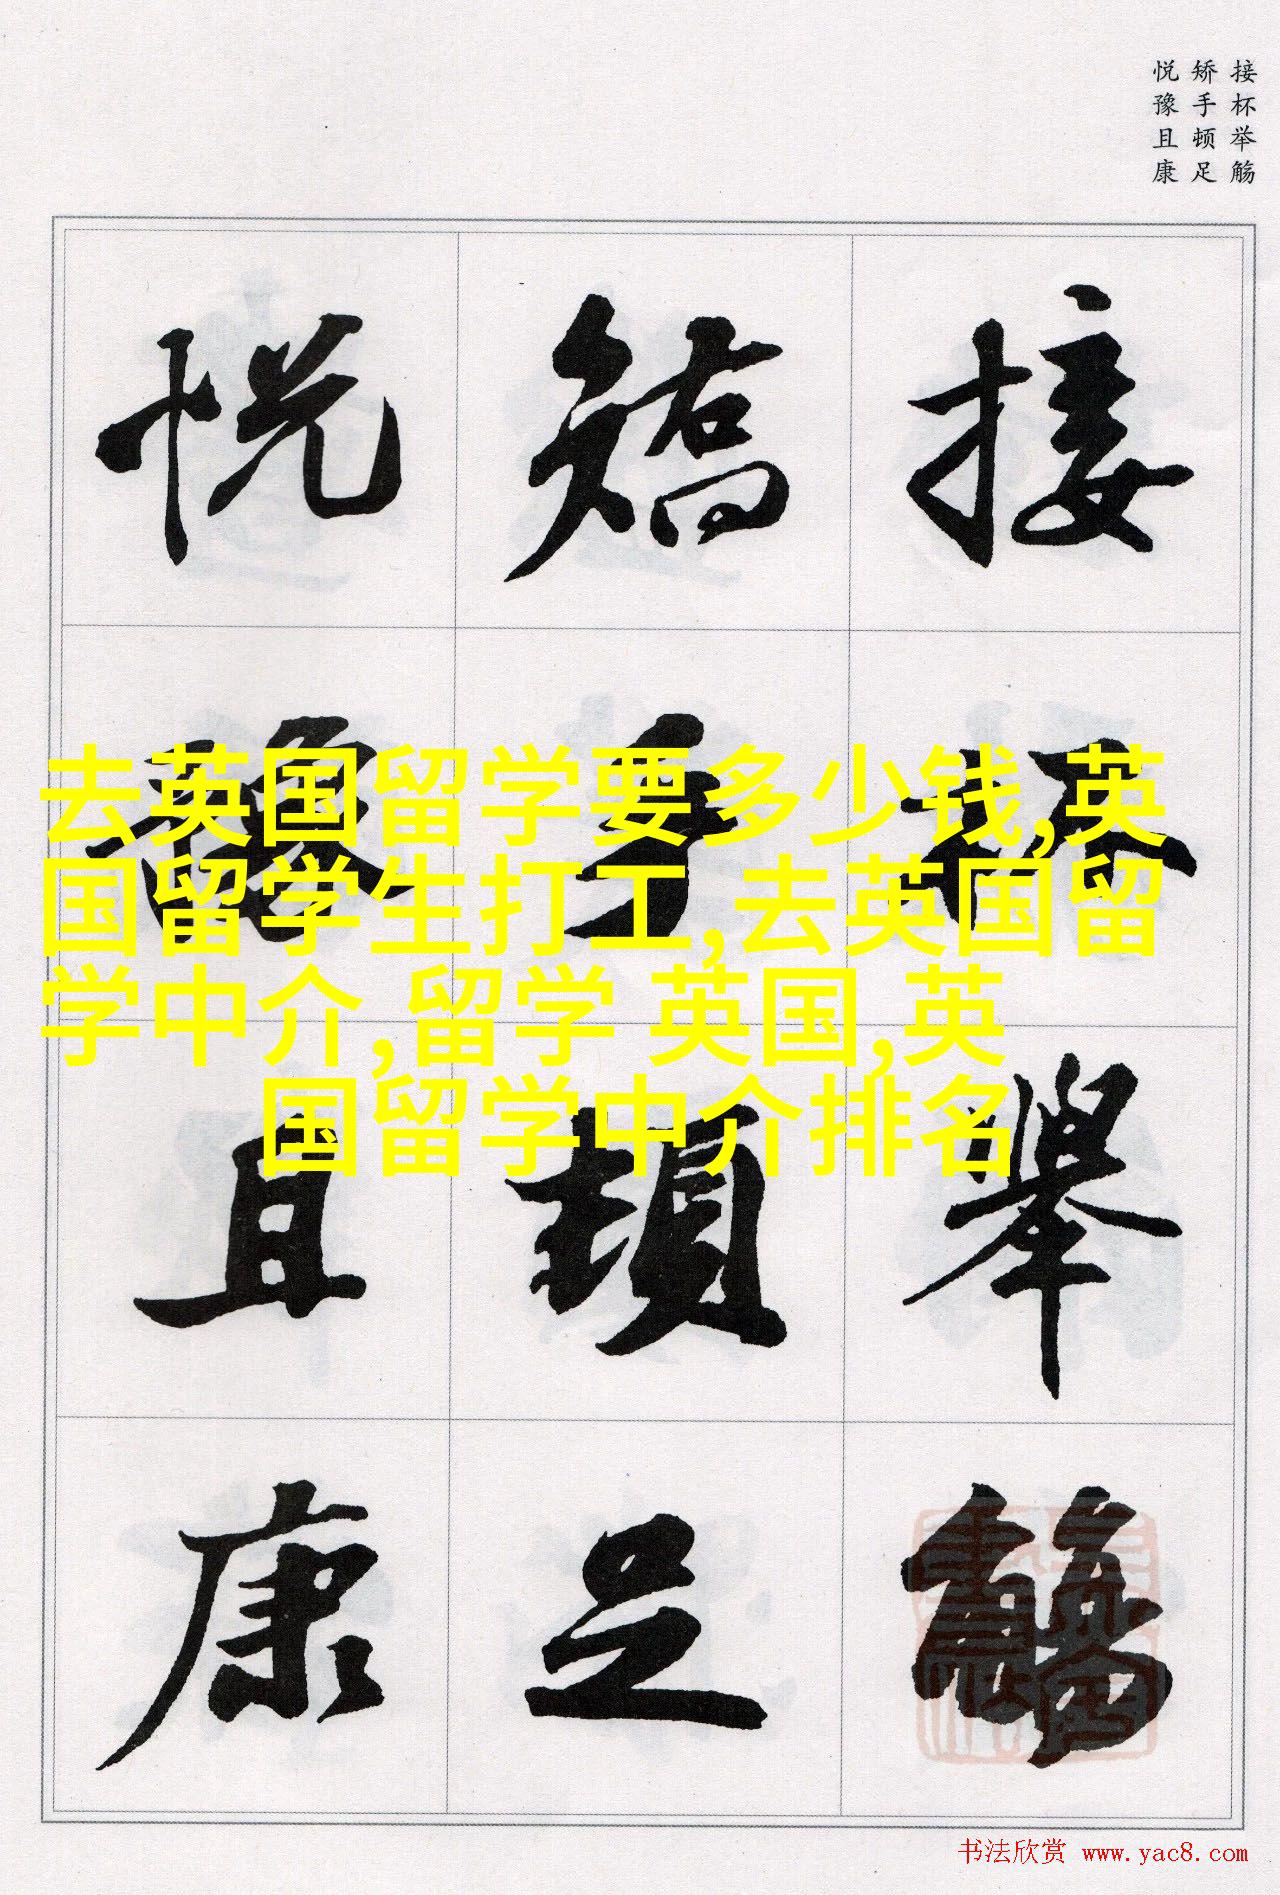 接杯举觞
矫手顿足
悦豫且康
接杯舉觴
矯手頓足
悦豫且康
去英国留学要多少钱,英
国留学生打工,去英国留
学中介,留学 英国,英
国留学中介排名
书法欣赏 www.yac8.com